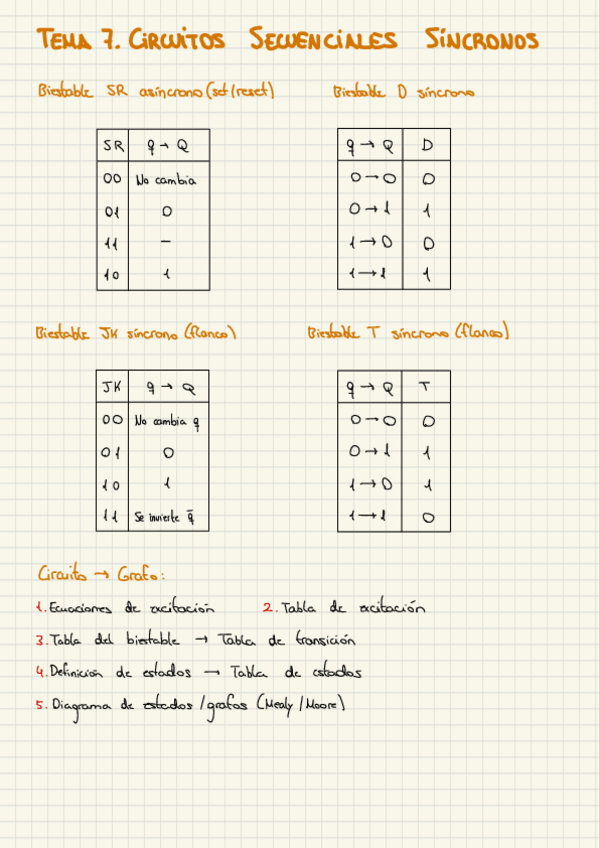 TEMA 7. CIRCUITOS SECUENCIALES SÍNCRONOS
Biestable SR asíncrono (set/reset)
SR q → Q
00 No cambia
01 0
11 —
10 1
Biestable D síncrono
q → Q D
0 → 0 0
0 → 1 1
1 → 0 0
1 → 1 1
Biestable JK síncrono (flanco)
JK q → Q
00 No cambia q
01 0
10 1
11 Se invierte q̄
Biestable T síncrono (flanco)
q → Q T
0 → 0 0
0 → 1 1
1 → 0 1
1 → 1 0
Circuito → Grafo:
1. Ecuaciones de excitación 2. Tabla de excitación
3. Tabla del biestable → Tabla de transición
4. Definición de estados → Tabla de estados
5. Diagrama de estados / grafos (Mealy / Moore)